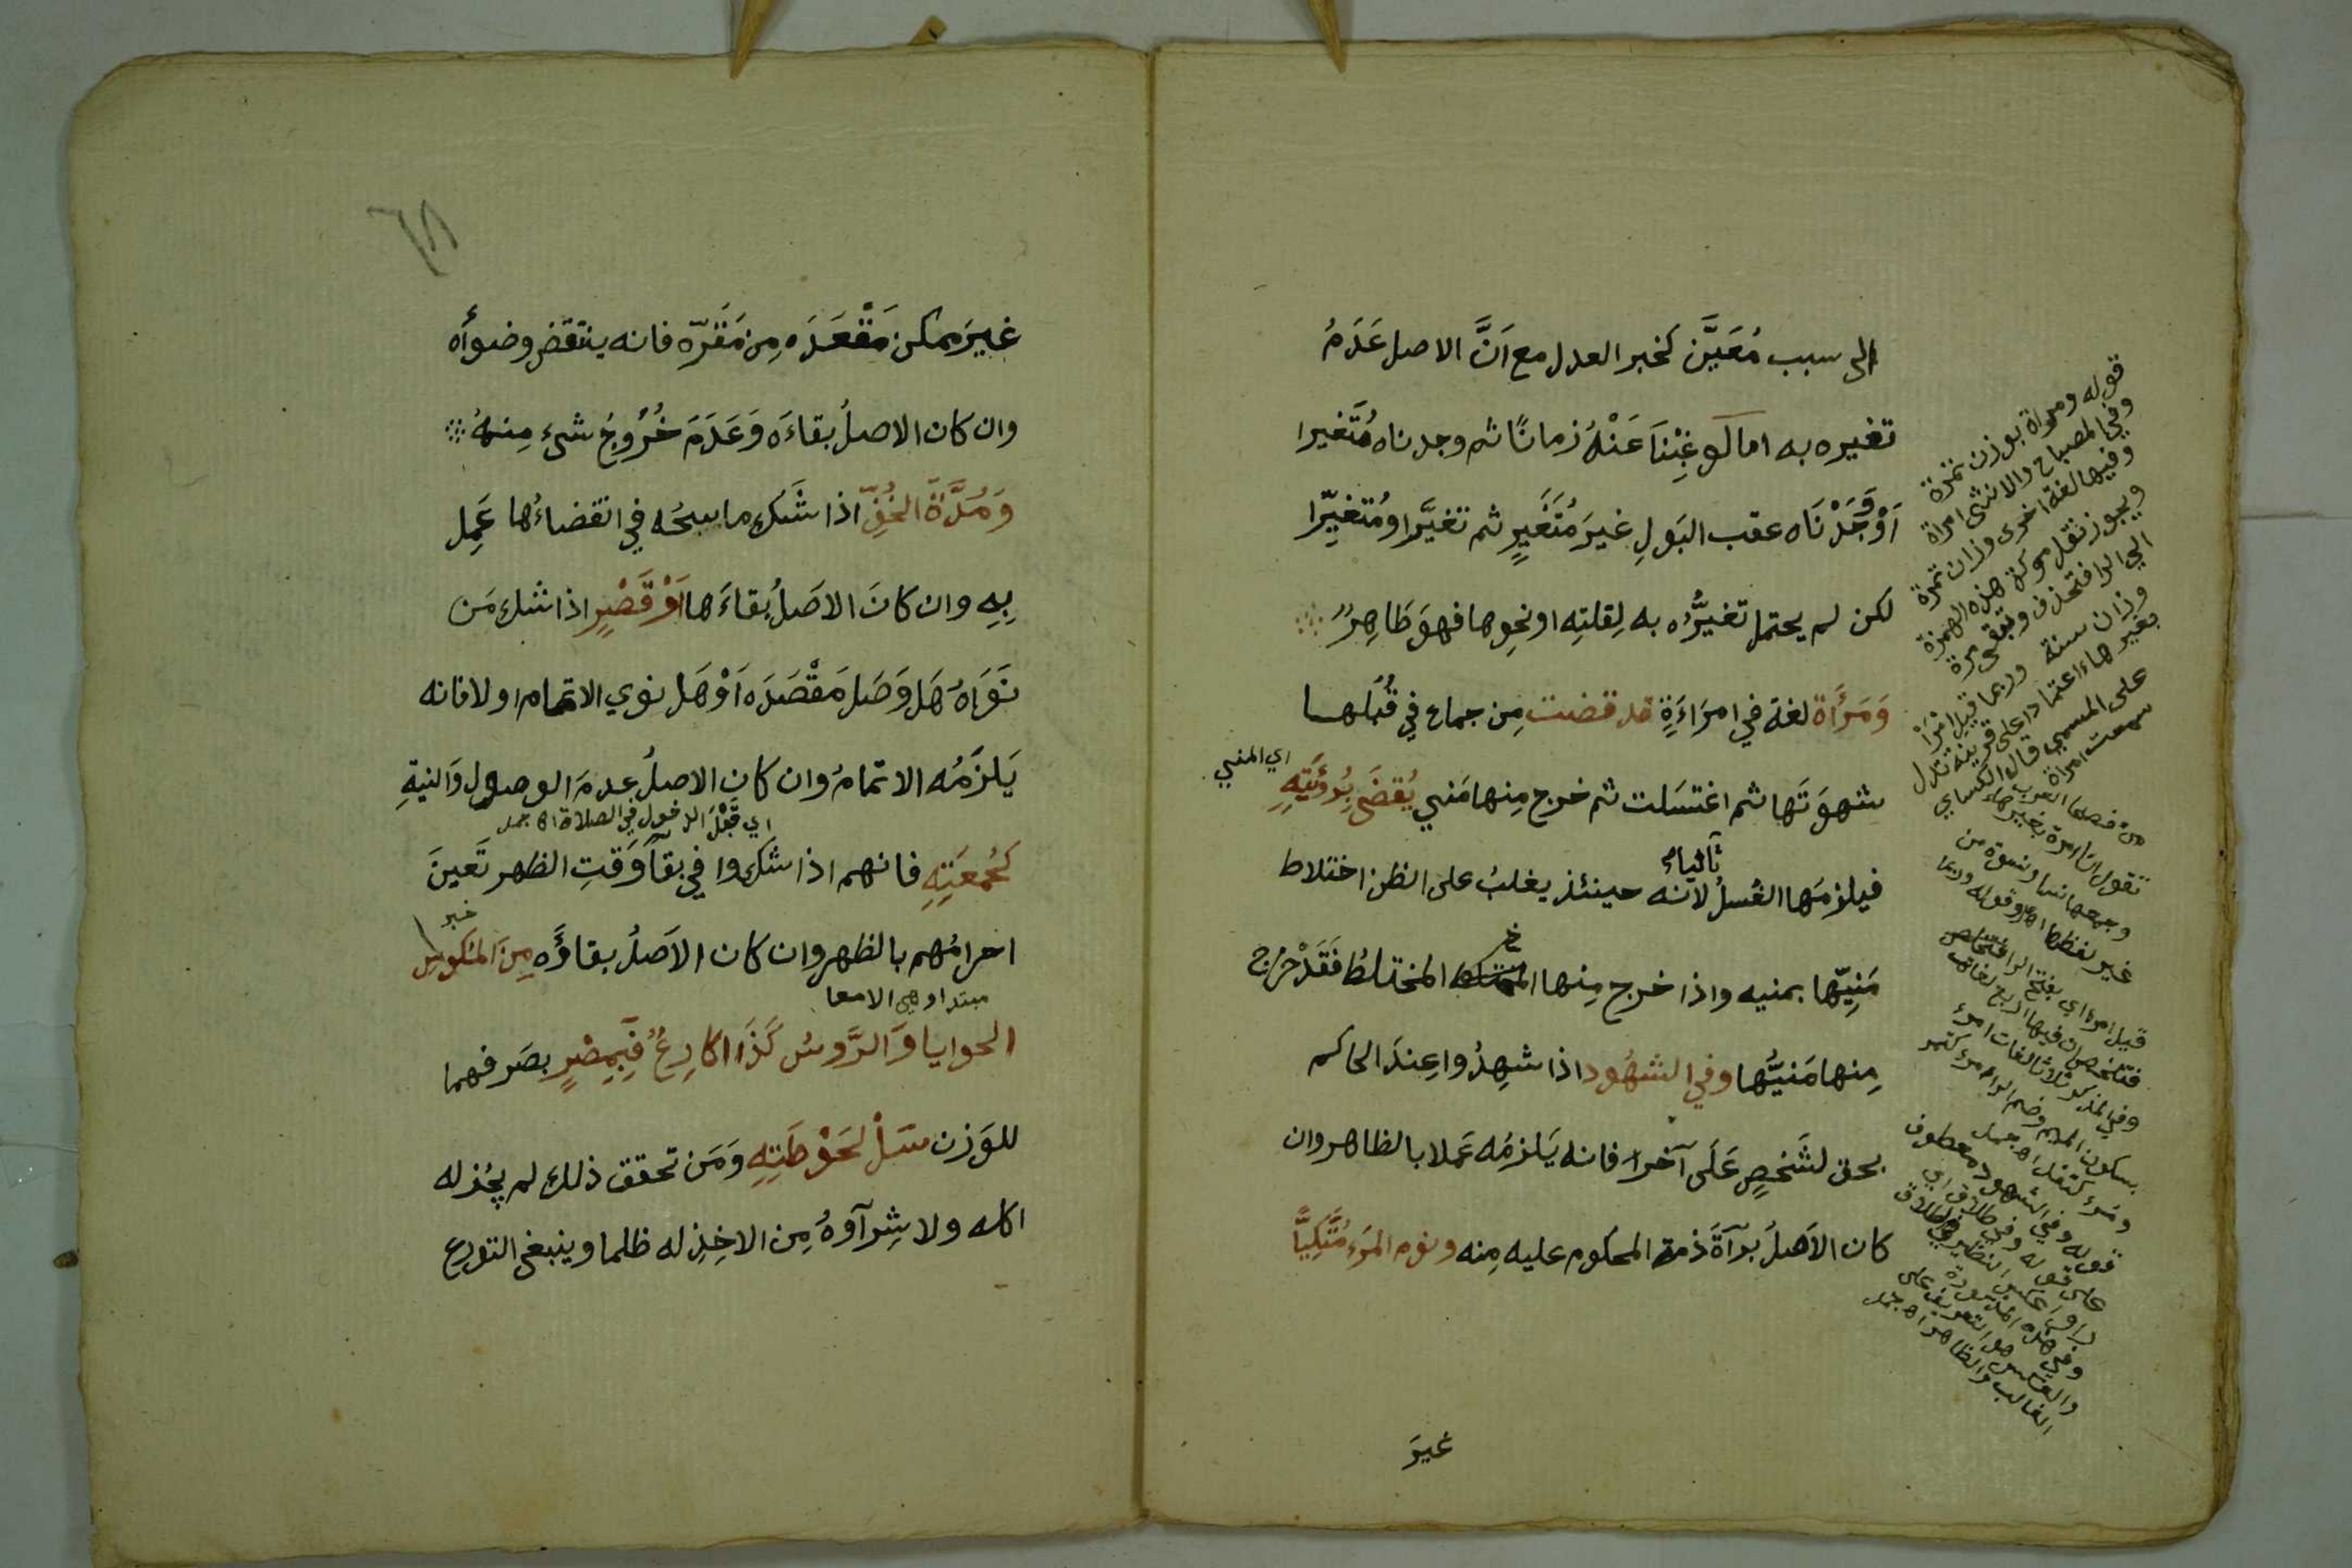 الى سبب مُعَيَّن كخبر العدل مع اَنَّ الاصل عَدَمُ
تغيره به اما لَو غِبْنَا عَنْهُ زمانًا ثم وجدناه مُتَغيرا
اَوْ وَجَدْنَاه عقب البَولِ غيرَ مُتَغَيرٍ ثم تغيَّر او مُتغيِّرا
لكن لم يحتمل تغيرُّه به لِقلتِه او نحوِها فهوَ طَاهِرٌ
وَمَرْأَة لغة في امرَاءَةٍ قد قضت مِن جماع في قُبُلها
شهوَتَها ثم اغتسَلت ثم خرج مِنها مَني يُقضَى بِرُؤيَتِهِ
اي المني
فيلزمَها الغُسلُ ثانياً لانه حينئذ يغلبُ على الظن اختلاط
مَنِيّها بمنيه واذا خرج مِنها المختلطُ فَقَدْ خرج
مِنها مَنيُّها وفي الشهُود اذا شهِدُوا عِندَ الحاكم
بحق لشَخصٍ عَلَى آخر فانه يَلزمُه عَملا بالظاهر وان
كان الاَصلُ برآةَ ذمة المحكوم عليه مِنه ونوم المَرءِ مُتَّكِيًّا
غيرَ
قوله ومرأة بوزن تمرة
وفي المصباح والانثى امراة
وفيها لغة اخرى وزان تمرة
ويجوز نقل حركة هذه الهمزة
الى الرا فتحذف وتبقى مرة
وزان سنة وربما قيل امْرَأ
بغير هاء اعتمادا على قرينة تدل
على المسمي قال الكساي
سمعت امراة من فصحا العرب
تقول انا امرؤ بغير هاء
وجمعها نسا ونسوة من
غير لفظها اهـ وقوله وربما
قيل امرا اي بفتح الرا
فتلخص ان فيها اربع لغات
وفي المذكر ثلاث لغات امرء
بسكون الميم وضم الراء ومرء
ومرء كقفل اهـ جمل
قوله وفي الشهود معطوف
على قوله وفي طلاق اي
وفي هذه
الغالب والظاهر اهـ جمل
٦٨
غيرَ ممكن مَقْعَدَه مِن مَقَرّه فانه ينتقض وضوأه
وان كان الاصلُ بقاءَه وَعَدَمَ خُرُوجُ شىء مِنهُ
وَمُدَّةَ الخُفّ اذا شَك ماسحُه في انقضاءُها عَمِل
بِهِ وان كانَ الاصَلُ بقاءَها اَوْ قَصْرٍ اذا شك مَن
نَوَاهُ هَل وَصَل مَقْصَدَه اَوْ هَل نوي الاتمام او لا فانه
يَلزَمُه الاتمامُ وان كان الاصلُ عدمَ الوصول وَالنيةِ
اي قَبْلَ الدخول في الصلاة اهـ جمل
كَجُمعَتِهِ فانهم اذا شكوا في بقآ وَقتِ الظهر تَعينَ
احرامُهم بالظهر وان كان الاَصلُ بقاؤَه مِنَ المُكوسِ
خبر
مبتدا وهي الامعا
الحوايا وَالرَّوسُ كَذَا اكارِعُ فَبِمِصْرٍ بصَرفهما
للوَزن سَلْ لحَوْطَتِهِ وَمَن تحقق ذلك لم يجُز له
اكله ولا شِرآوهُ مِن الاخِذِ له ظلما وينبغى التورع